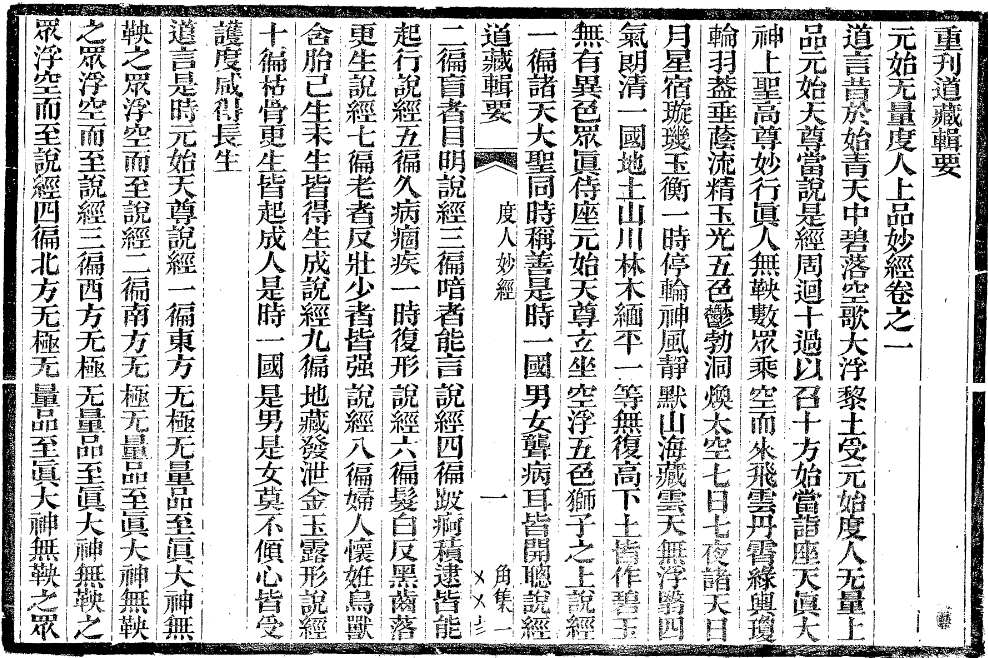 重刊道藏輯要
元始无量度人上品妙經卷之一
道言昔於始青天中碧落空歌大浮黎土受元始度人无量上
品元始天尊當說是經周迴十過以召十方始當詣座天眞大
神上聖高尊妙行眞人無鞅數眾乘空而來飛雲丹霄綠輿瓊
輪羽蓋垂蔭流精玉光五色鬱勃洞煥太空七日七夜諸天日
月星宿璇璣玉衡一時停輪神風靜默山海藏雲天無浮翳四
氣朗清一國地土山川林木緬平一等無復高下土皆作碧玉
無有異色眾眞侍座元始天尊玄坐空浮五色獅子之上說經
一徧諸天大聖同時稱善是時一國男女聾病耳皆開聰說經
道藏輯要 度人妙經 一 角集一
二徧盲者目明說經三徧喑者能言說經四徧跛痾積逮皆能
起行說經五徧久病痼疾一時復形說經六徧髮白反黑齒落
更生說經七徧老者反壯少者皆强說經八徧婦人懷妊鳥獸
含胎已生未生皆得生成說經九徧地藏發泄金玉露形說經
十徧枯骨更生皆起成人是時一國是男是女莫不傾心皆受
護度咸得長生
道言是時元始天尊說經一徧東方无極无量品至眞大神無
鞅之眾浮空而至說經二徧南方无極无量品至眞大神無鞅
之眾浮空而至說經三徧西方无極无量品至眞大神無鞅之
眾浮空而至說經四徧北方无極无量品至眞大神無鞅之眾